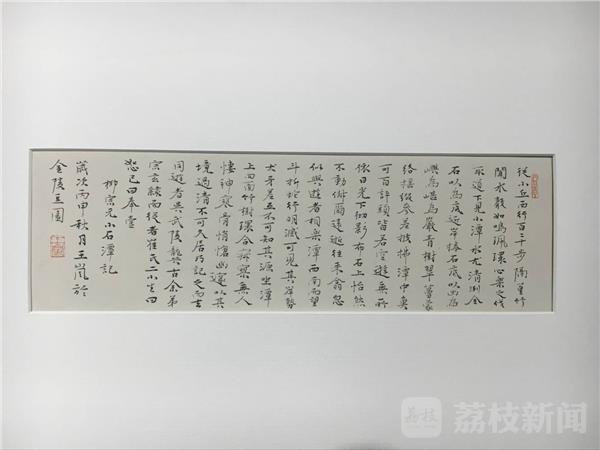 從小丘西行百二十步隔篁竹
聞水聲如鳴珮環心樂之伐
取道下見小潭水尤清冽全
石以為底近岸卷石底以出為
嶼為嵁為巖青樹翠蔓蒙
絡搖綴參差披拂潭中魚
可百許頭皆若空遊無所
依日光下徹影布石上怡然
不動俶爾遠逝往來翕忽
似與遊者相樂潭西南而望
斗折蛇行明滅可見其岸勢
犬牙差互不可知其源坐潭
上四面竹樹環合寂寥無人
悽神寒骨悄愴幽邃以其
境過清不可久居乃記之而去
同遊者吳武陵龔古余弟
宗玄隸而從者崔氏二小生曰
恕己曰奉壹
柳宗元小石潭記
歲次丙申秋月王嵐於
金陵豆園
荔枝
荔枝新闻